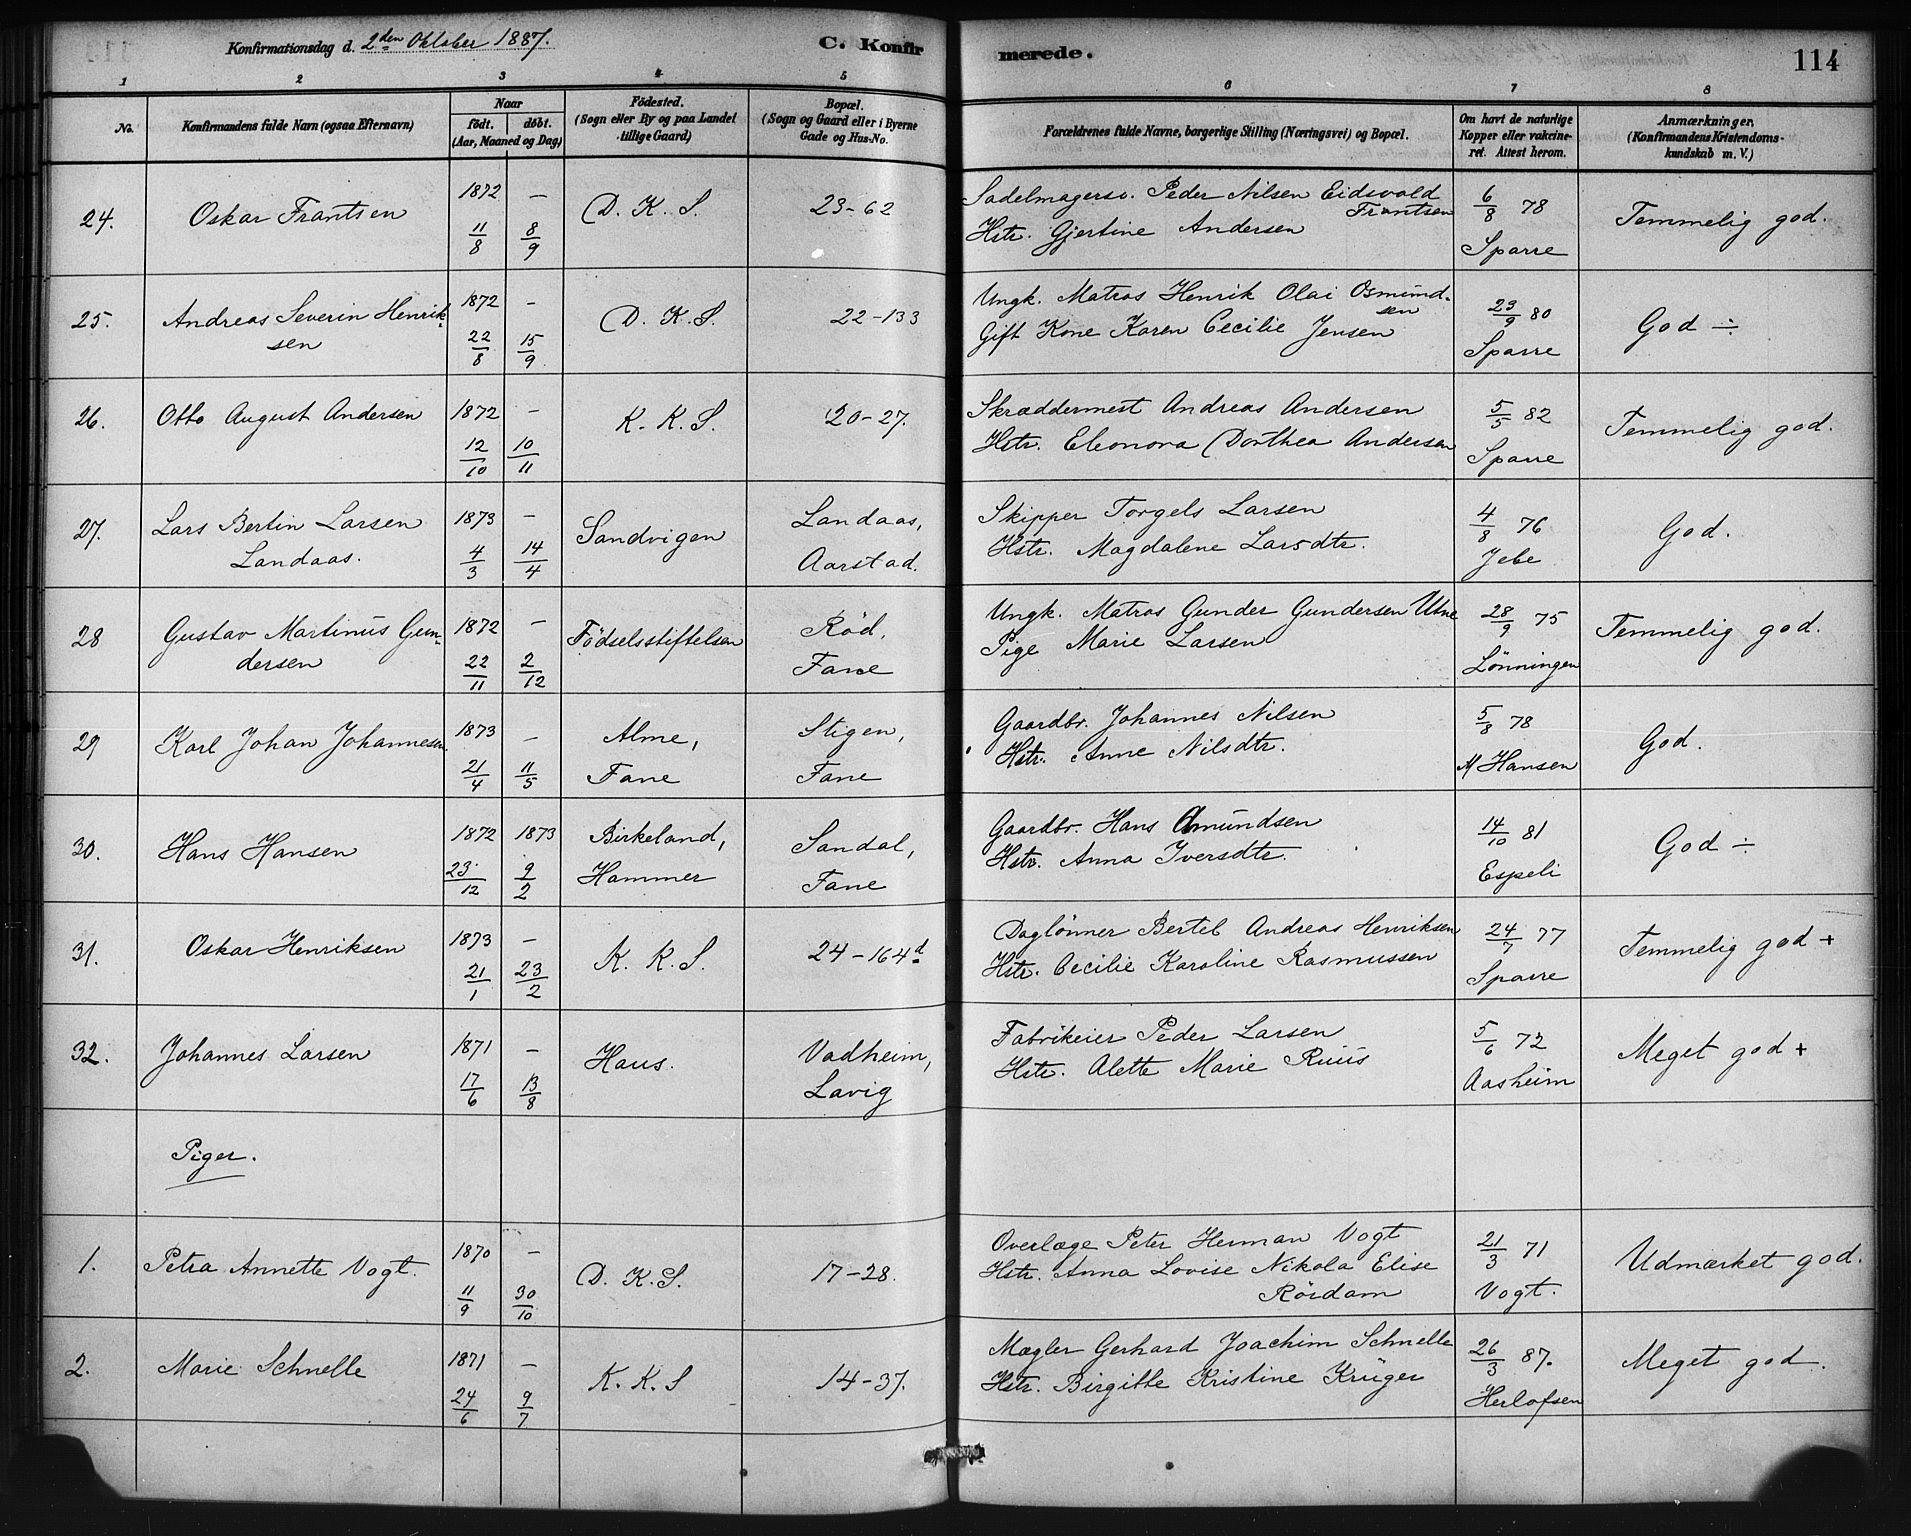 Konfirmationsdag d. 2den Oktober 1887. C. Konfirmerede. 114
1 2 3 4 5 6 7 8
No. Konfirmandens fulde Navn (ogsaa Efternavn) Naar födt. döbt. (Aar, Maaned og Dag) Födested. (Sogn eller By og paa Landet tillige Gaard) Bopæl. (Sogn og Gaard eller i Byerne Gade og Hus-No. Forældrenes fulde Navne, borgerlige Stilling (Næringsvei) og Bopæl. Om havt de naturlige Kopper eller vakcineret. Attest herom. Anmærkninger, (Konfirmandens Kristendomskundskab m. V.)
24. Oskar Frantsen 1872 11/8 — 8/9 D. K. S. 23-62 Sadelmagersv. Peder Nilsen Eidsvold Frantsen
Hstr. Gjertine Andersen 6/8 78 Sparre Temmelig god.
25. Andreas Severin Henriksen 1872 22/8 — 15/9 D. K. S. 22-133 Ungk. Matros Henrik Olai Osmundsen
Gift Kone Karen Cecilie Jensen 23/9 80 Sparre God ÷
26. Otto August Andersen 1872 12/10 — 10/11 K. K. S. 20-27. Skræddermest Andreas Andersen
Hstr. Eleonora Dorthea Andersen 5/5 82 Sparre Temmelig god.
27. Lars Bertin Larsen Landaas. 1873 4/3 — 14/4 Sandvigen Landaas, Aarstad. Skipper Torgels Larsen
Hstr. Magdalene Larsdtr. 4/8 76 Jebe God.
28 Gustav Martinus Gundersen 1872 22/11 — 2/12 Födselsstiftelsen Röd, Fane Ungk. Matros Gunder Gundersen Utne
Pige Marie Larsen 28/9 75 Lönningen Temmelig god.
29 Karl Johan Johannesen 1873 21/4 — 11/5 Alme, Fane Stigen, Fane Gaardbr. Johannes Nilsen
Hstr. Anne Nilsdtr. 5/8 78 M Hansen God.
30. Hans Hansen 1872 23/12 1873 9/2 Birkeland, Hammer Sandal, Fane Gaardbr. Hans Amundsen
Hstr. Anna Iversdtr. 14/10 81 Espeli God ÷
31. Oskar Henriksen 1873 21/1 — 23/2 K. K. S. 24-164d Daglönner Bertel Andreas Henriksen
Hstr. Cecilie Karoline Rasmussen 24/7 77 Sparre Temmelig god +
32. Johannes Larsen 1871 17/6 — 13/8 Haus. Vadheim, Lavig Fabrikeier Peder Larsen
Hstr. Alette Marie Ruus 5/6 72 Aasheim Meget god +
Piger.
1. Petra Annette Vogt. 1870 11/9 — 30/10 D. K. S. 17-28. Overlæge Peter Herman Vogt
Hstr. Anna Lovise Nikola Elise Rördam 21/3 71 Vogt. Udmærket god.
2. Marie Schnelle 1871 24/6 — 9/7 K. K. S 14-37. Mægler Gerhard Joachim Schnelle
Hstr. Birgitte Kristine Krüger 26/3 87. Herlofsen Meget god.